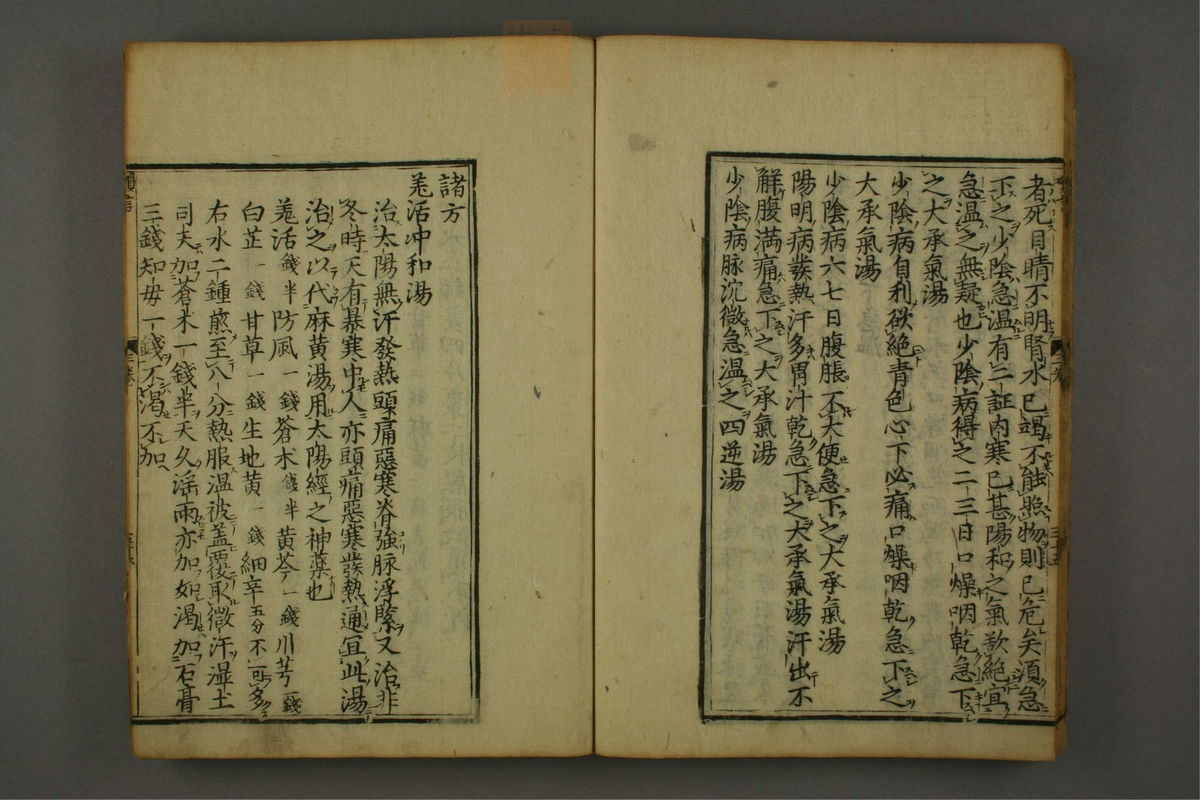 者死目睛不明腎水已竭不能照物則已危矣須急
下之少陰急温有二証内寒已甚陽和之氣欲絶宜
急温之無疑也少陰病得之二三日口燥咽乾急下
之大承氣湯
少陰病自利欲絶青色心下必痛口燥咽乾急下之
大承氣湯
少陰病六七日腹脹不大便急下之大承氣湯
陽明病發熱汗多胃汁乾急下之大承氣湯汗出不
解腹満痛急下之大承氣湯
少陰病脉沉微急温之四逆湯
諸方
羗活冲和湯
治太陽無汗發熱頭痛惡寒脊強脉浮緊又治非
冬時天有暴寒中人亦頭痛惡寒發熱通宜此湯
治之以代麻黄湯用太陽經之神藥也
羗活錢半防風一錢蒼术錢半黄芩一錢川芎一錢
白芷一錢甘草一錢生地黄一錢細辛五分不可多
右水二鍾煎至八分熱服温被盖覆取微汗湿土
司天加蒼术一錢半天久滛雨亦加如渴加石膏
三錢知母一錢不渇不加